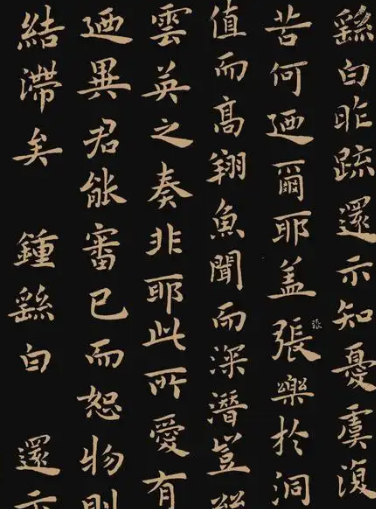 繇白昨疏還示知憂虞復
苦何迺爾耶盖張樂於洞
張
值而髙翔魚聞而深潛豈
雲英之奏非耶此所愛有
迺異君能審己而恕物則
結滯矣 鍾繇白 還示